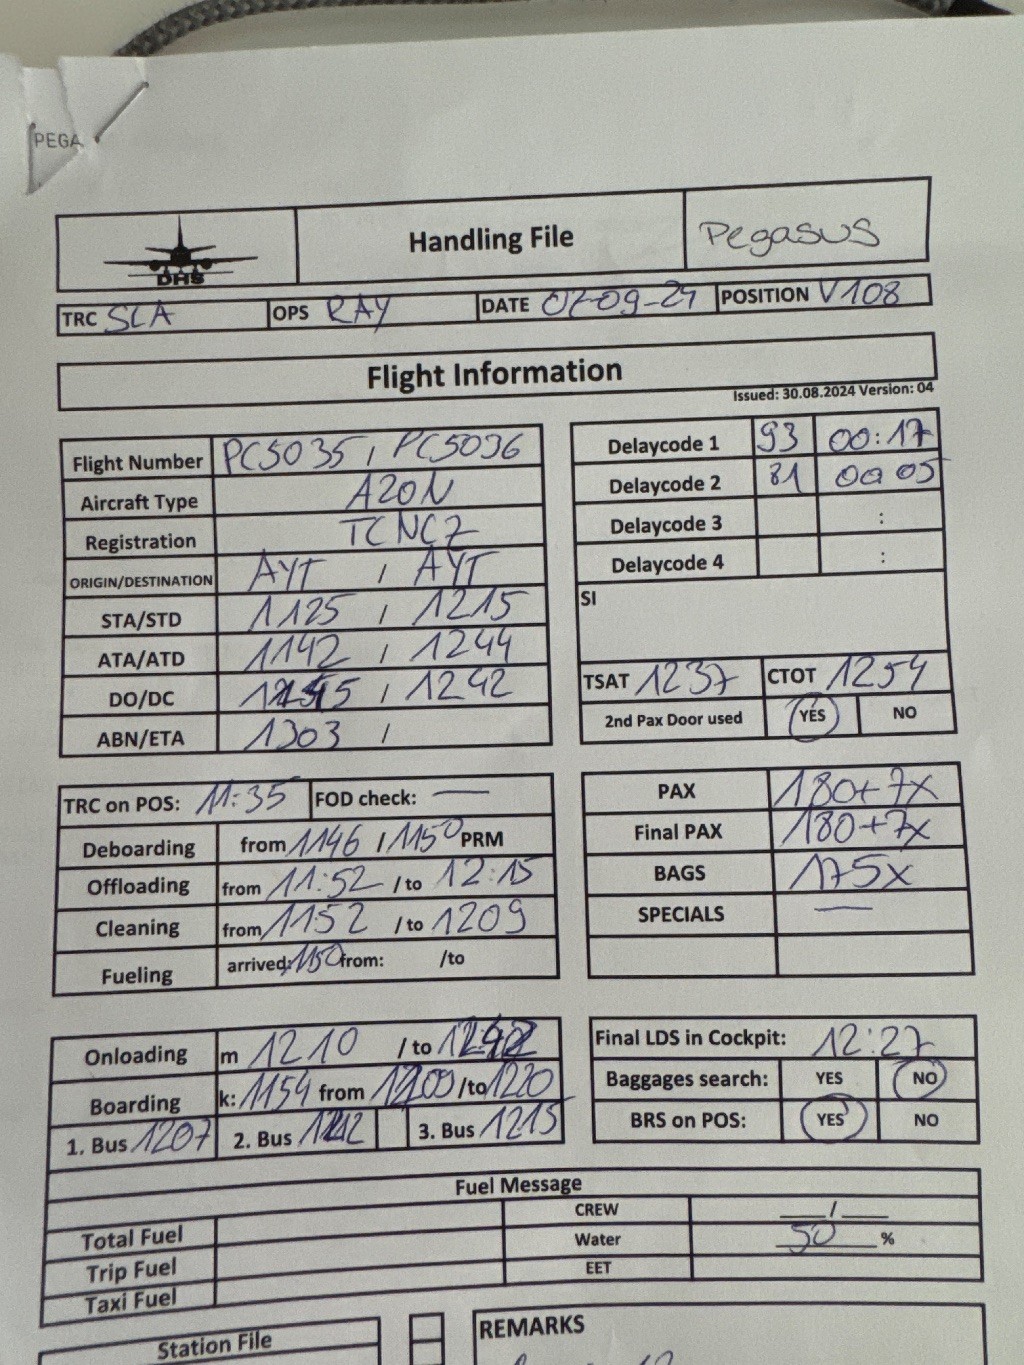 PEGA
DHS
Handling File
Pegasus
TRC SLA OPS RAY DATE 07-09-24 POSITION V108
Flight Information
Issued: 30.08.2024 Version: 04
Flight Number PC5035 / PC5036
Aircraft Type A20N
Registration TCNCZ
ORIGIN/DESTINATION AYT / AYT
STA/STD 1125 / 1215
ATA/ATD 1142 / 1244
DO/DC / 1242
ABN/ETA 1303 /
Delaycode 1 93 00:17
Delaycode 2 81 00 05
Delaycode 3 :
Delaycode 4 :
SI
TSAT 1237 CTOT 1254
2nd Pax Door used YES NO
TRC on POS: 11:35 FOD check: —
Deboarding from 1146 / 1150 PRM
Offloading from 11:52 /to 12:15
Cleaning from 1152 /to 1209
Fueling arrived: 1150 from: /to
PAX 180+7x
Final PAX 180+7x
BAGS 175x
SPECIALS —
Onloading m 1210 /to
Boarding k: 1154 from 1200 /to 1220
1. Bus 1207 2. Bus 1212 3. Bus 1215
Final LDS in Cockpit: 12:27
Baggages search: YES NO
BRS on POS: YES NO
Fuel Message
Total Fuel CREW /
Trip Fuel Water 50 %
Taxi Fuel EET
Station File
REMARKS